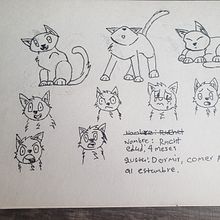 Nombre: Rocht
Nombre: Rocht
edad: 4 meses
gusta: Dormir, comer
al estambre.